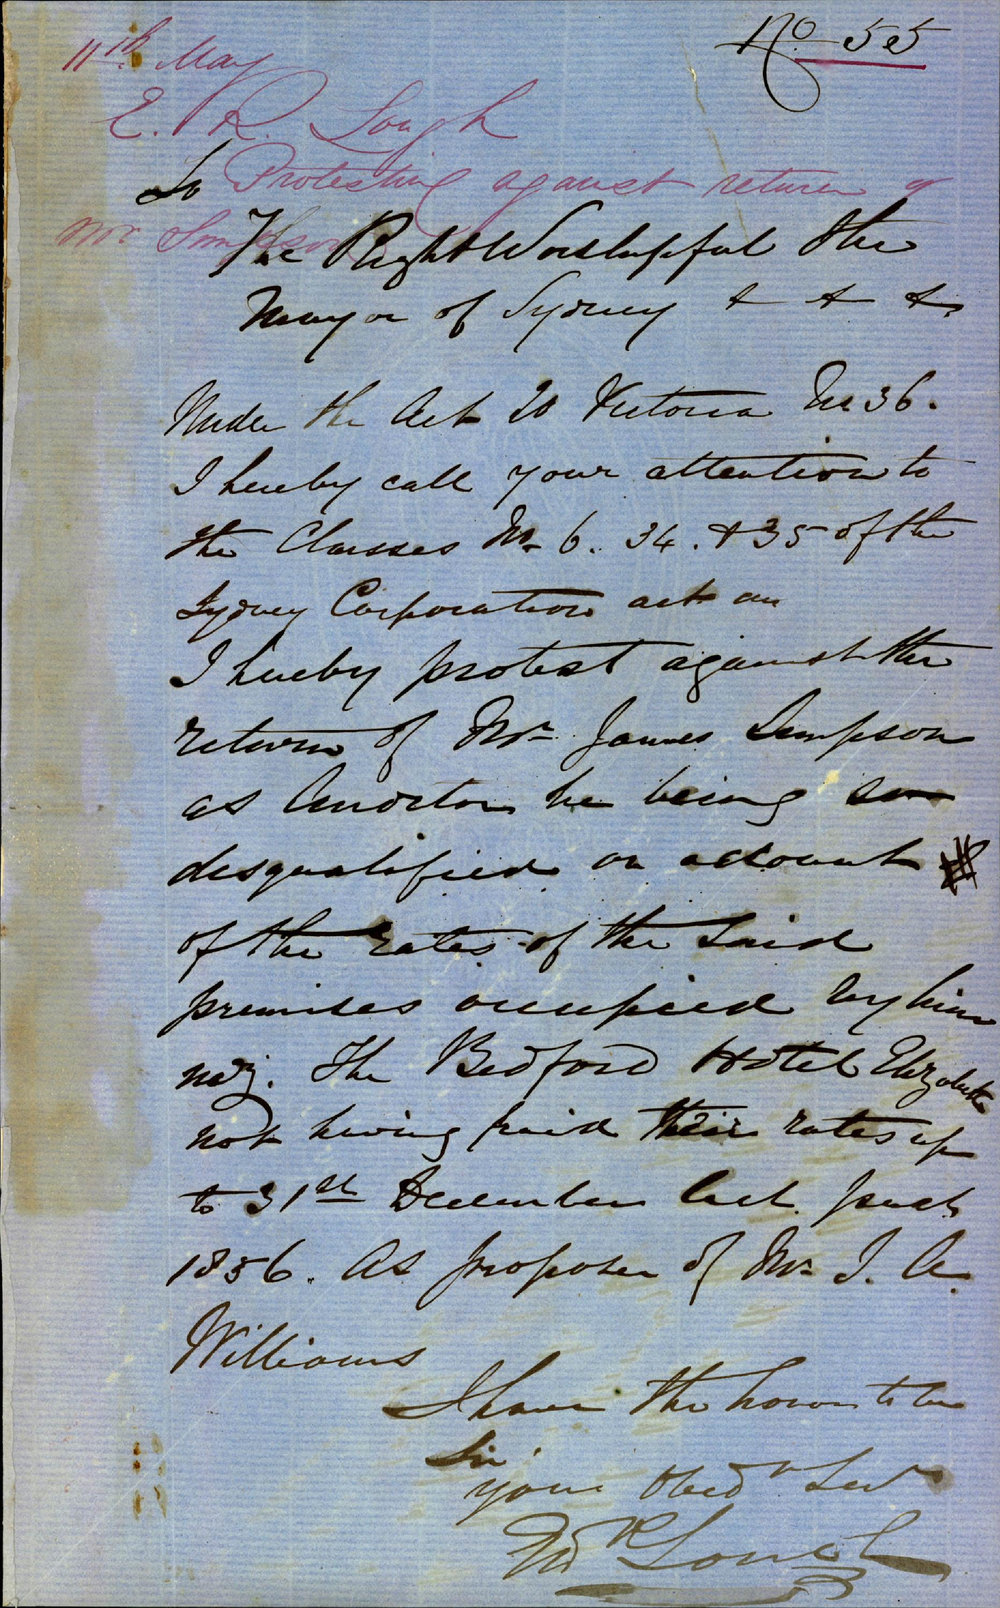 No. 55
11th May
E. R. Lough
Protesting against return of
Mr Simpson
To
The Right Worshipful the
Mayor of Sydney & & &.
Under the Act 20 Victoria No 36.
I hereby call your attention to
the Clauses No. 6. 34. & 35 of the
Sydney Corporation act
I hereby protest against the
return of Mr James Simpson
as Auditor he being
disqualified on account #
of the rates of the Said
premises occupied by him
The Bedford Hotel Elizabeth
not having paid their rates up
to 31st December last past
1856. As proposer of Mr J. A.
Williams
I have the honor to be
Sir
your Obedt Servt
R Lough